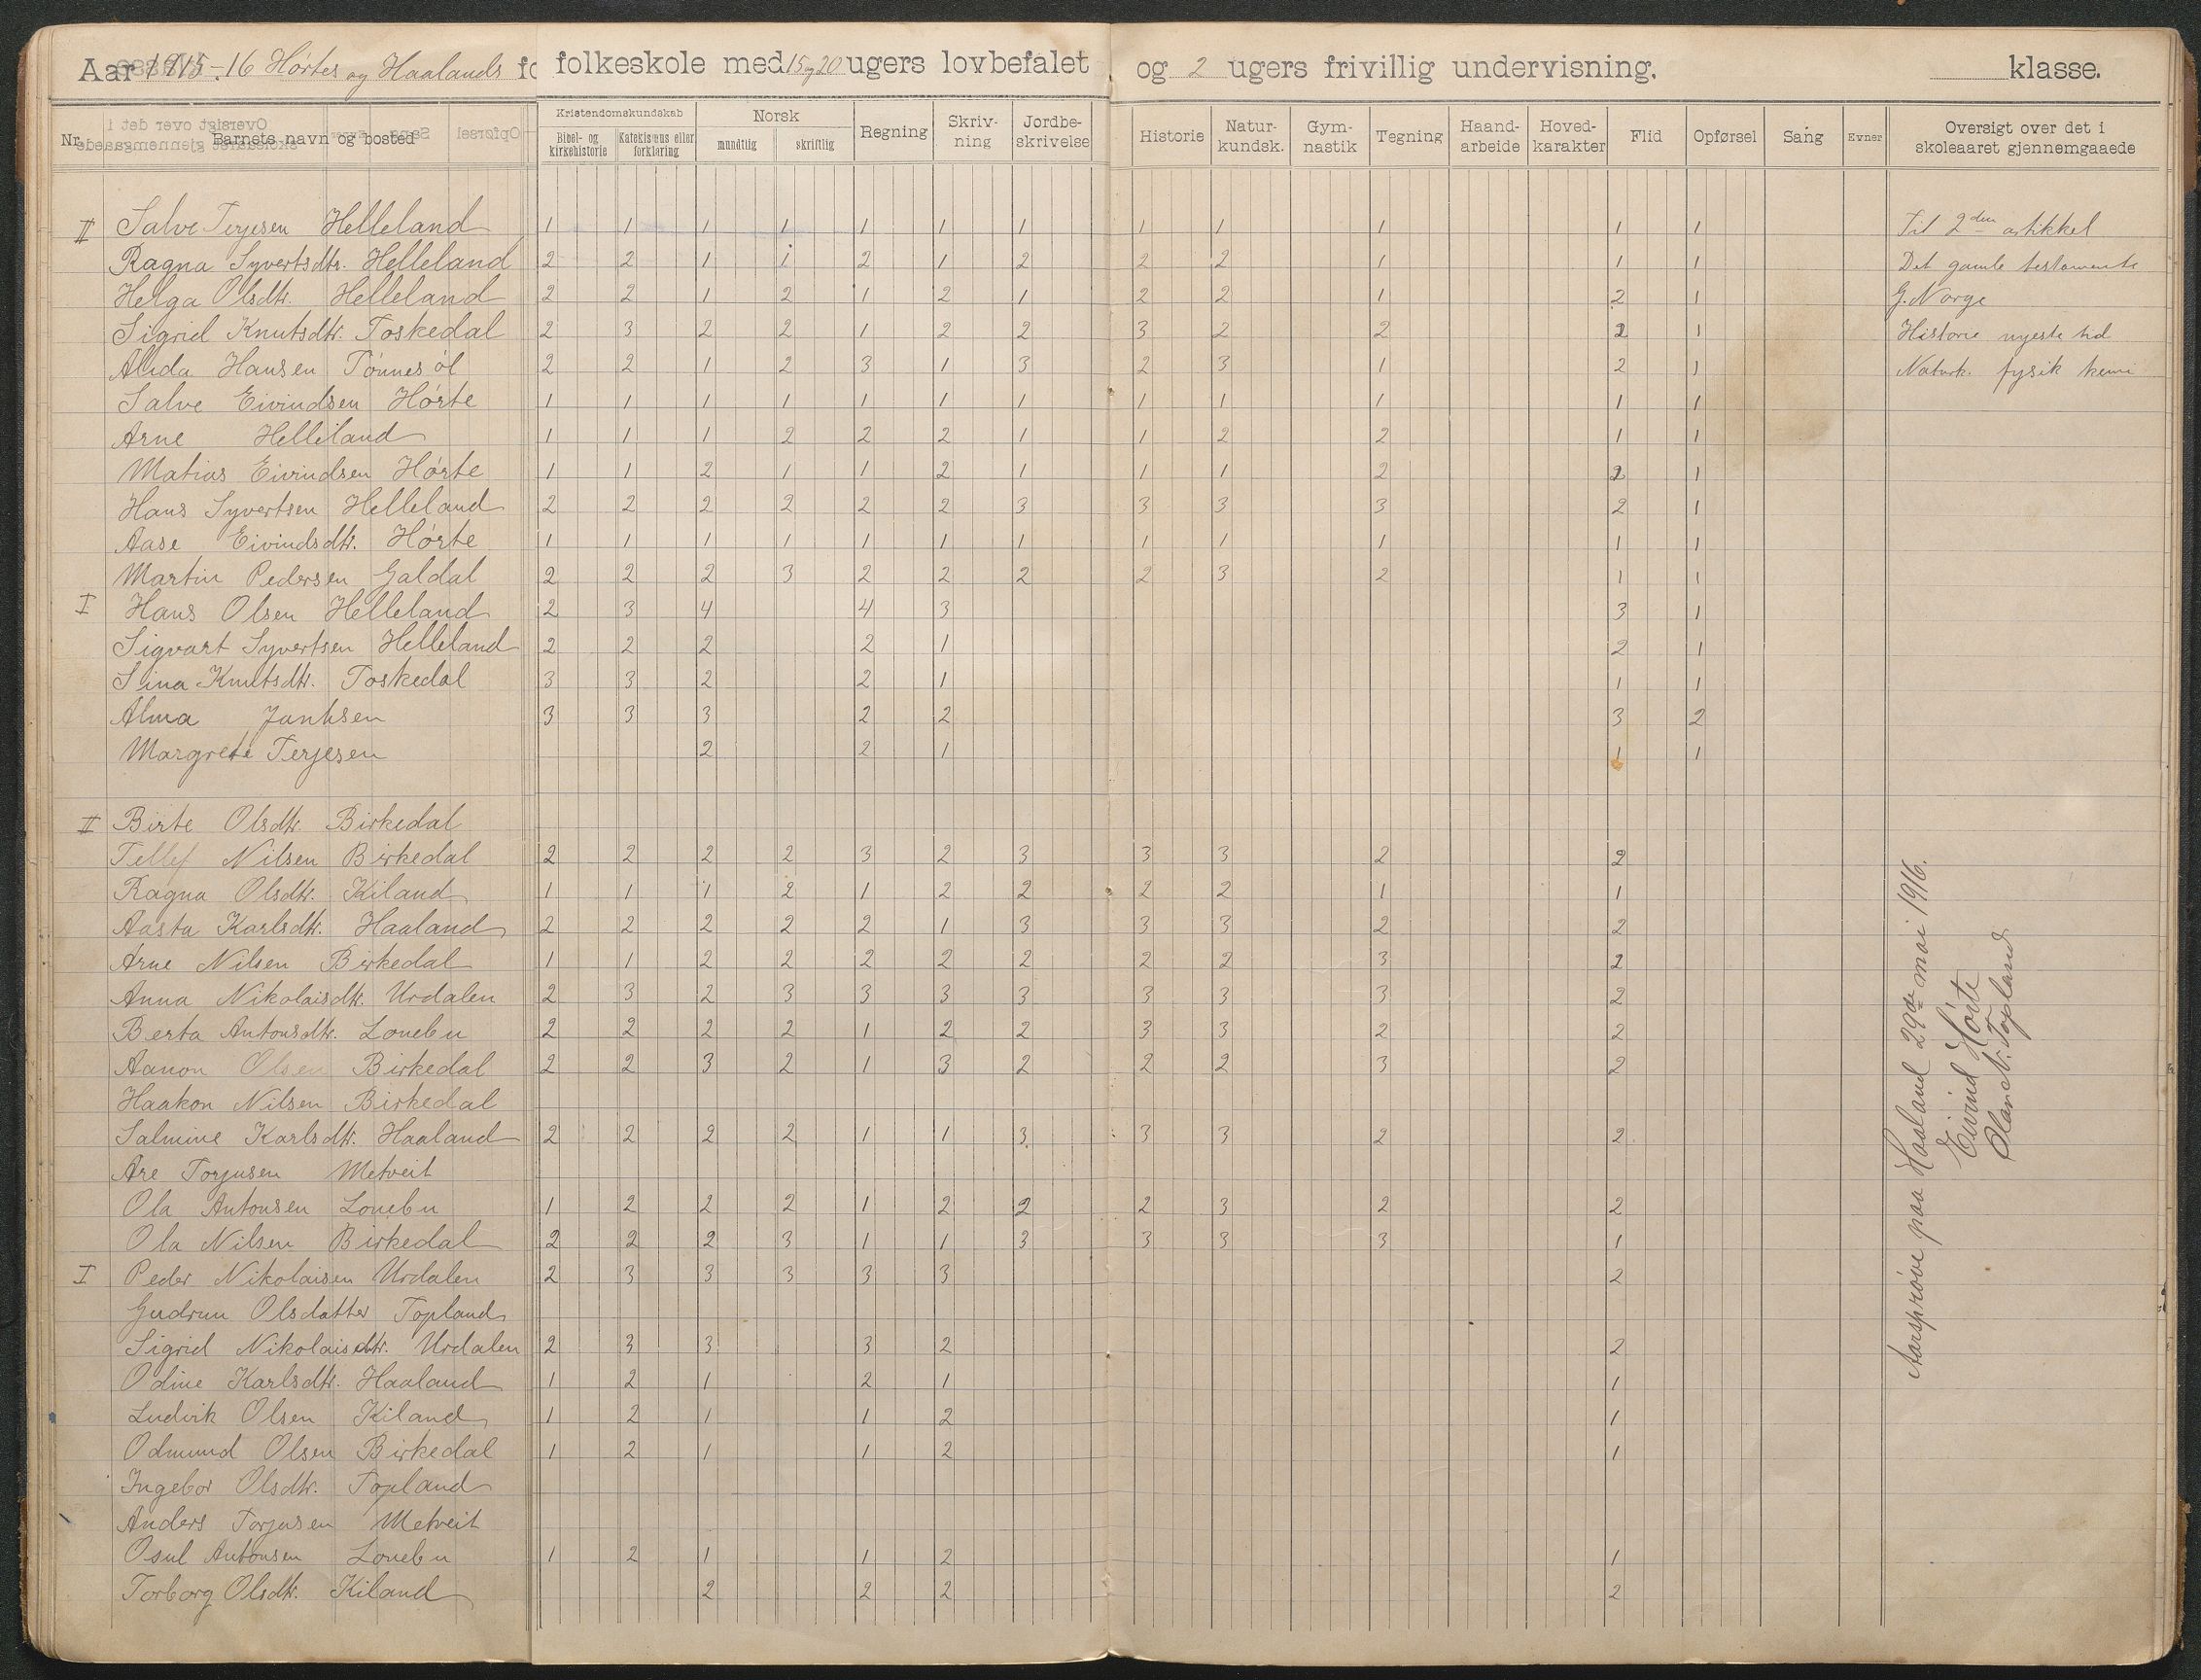 Aar 1915-16 Hørtes og Haalands folkeskole med 15 og 20 ugers lovbefalet og 2 ugers frivillig undervisning. klasse.
Nr. Barnets navn og bosted Kristendomskundskab Bibel- og kirkehistorie Katekismus eller forklaring Norsk mundtlig skriftlig Regning Skriv-ning Jordbe-skrivelse Historie Natur-kundsk. Gym-nastik Tegning Haand-arbeide Hoved-karakter Flid Opførsel Sang Evner Oversigt over det i skoleaaret gjennemgaaede
II Salve Terjesen Helleland 1 1 1 1 1 1 1 1 1 1 1 1 Til 2den artikkel
Ragna Syvertsdtr. Helleland 2 2 1 1 2 1 2 2 2 1 1 1 Det gamle testamente
Helga Olsdtr. Helleland 2 2 1 2 1 2 1 2 2 1 2 1 G. Norge
Sigrid Knutsdtr. Toskedal 2 3 2 2 1 2 2 3 2 2 2 1 Historie nyeste tid
Alida Hansen Tønnesøl 2 2 1 2 3 1 3 2 3 1 2 1 Naturk. fysik kemi
Salve Eivindsen Hørte 1 1 1 1 1 1 1 1 1 1 1 1
Arne Helleland 1 1 1 2 2 2 1 1 2 2 1 1
Matias Eivindsen Hørte 1 1 2 1 1 2 1 1 1 2 2 1
Hans Syvertsen Helleland 2 2 2 2 2 2 3 3 3 3 2 1
Aase Eivindsdtr. Hørte 1 1 1 1 1 1 1 1 1 1 1 1
Martin Pedersen Galdal 2 2 2 3 2 2 2 2 3 2 1 1
I Hans Olsen Helleland 2 3 4 4 3 3 1
Sigvart Syvertsen Helleland 2 2 2 2 1 2 1
Sina Knutsdtr. Toskedal 3 3 2 2 1 1 1
Alma 3 3 3 2 2 3 2
Margrete Terjesen 2 2 1 1 1
II Birte Olsdtr. Birkedal
Tellef Nilsen Birkedal 2 2 2 2 3 2 3 3 3 2 2
Ragna Olsdtr. Kiland 1 1 1 2 1 2 2 2 2 1 1
Aasta Karlsdtr. Haaland 2 2 2 2 2 1 3 3 3 2 2
Arne Nilsen Birkedal 1 1 2 2 2 2 2 2 2 3 2
Anna Nikolaisdtr. Urdalen 2 3 2 3 3 3 3 3 3 3 2
Berta Antonsdtr. Lonebu 2 2 2 2 1 2 2 3 3 2 2
Aanon Olsen Birkedal 2 2 3 2 1 3 2 2 2 3 2
Haakon Nilsen Birkedal
Salmine Karlsdtr. Haaland 2 2 2 2 1 1 3 3 3 2 2
Are Torjusen Metveit
Ola Antonsen Lonebu 1 2 2 2 1 2 2 2 3 2 2
Ola Nilsen Birkedal 2 2 2 3 1 1 3 3 3 3 1
I Peder Nikolaisen Urdalen 2 3 3 3 3 3 2
Gudrun Olsdatter Topland
Sigrid Nikolaisdtr. Urdalen 2 3 3 3 2 2
Odine Karlsdtr. Haaland 1 2 1 2 1 1
Ludvik Olsen Kiland 1 2 1 1 2 1
Odmund Olsen Birkedal 1 2 1 1 2 1
Ingebor Olsdtr. Topland
Anders Torjusen Metveit
Osul Antonsen Lonebu 1 2 1 1 2 1
Torborg Olsdtr. Kiland 2 2 2 2
Aarsprøve paa Haaland 29de mai 1916.
Eivind Hørte
Olav N. Topland